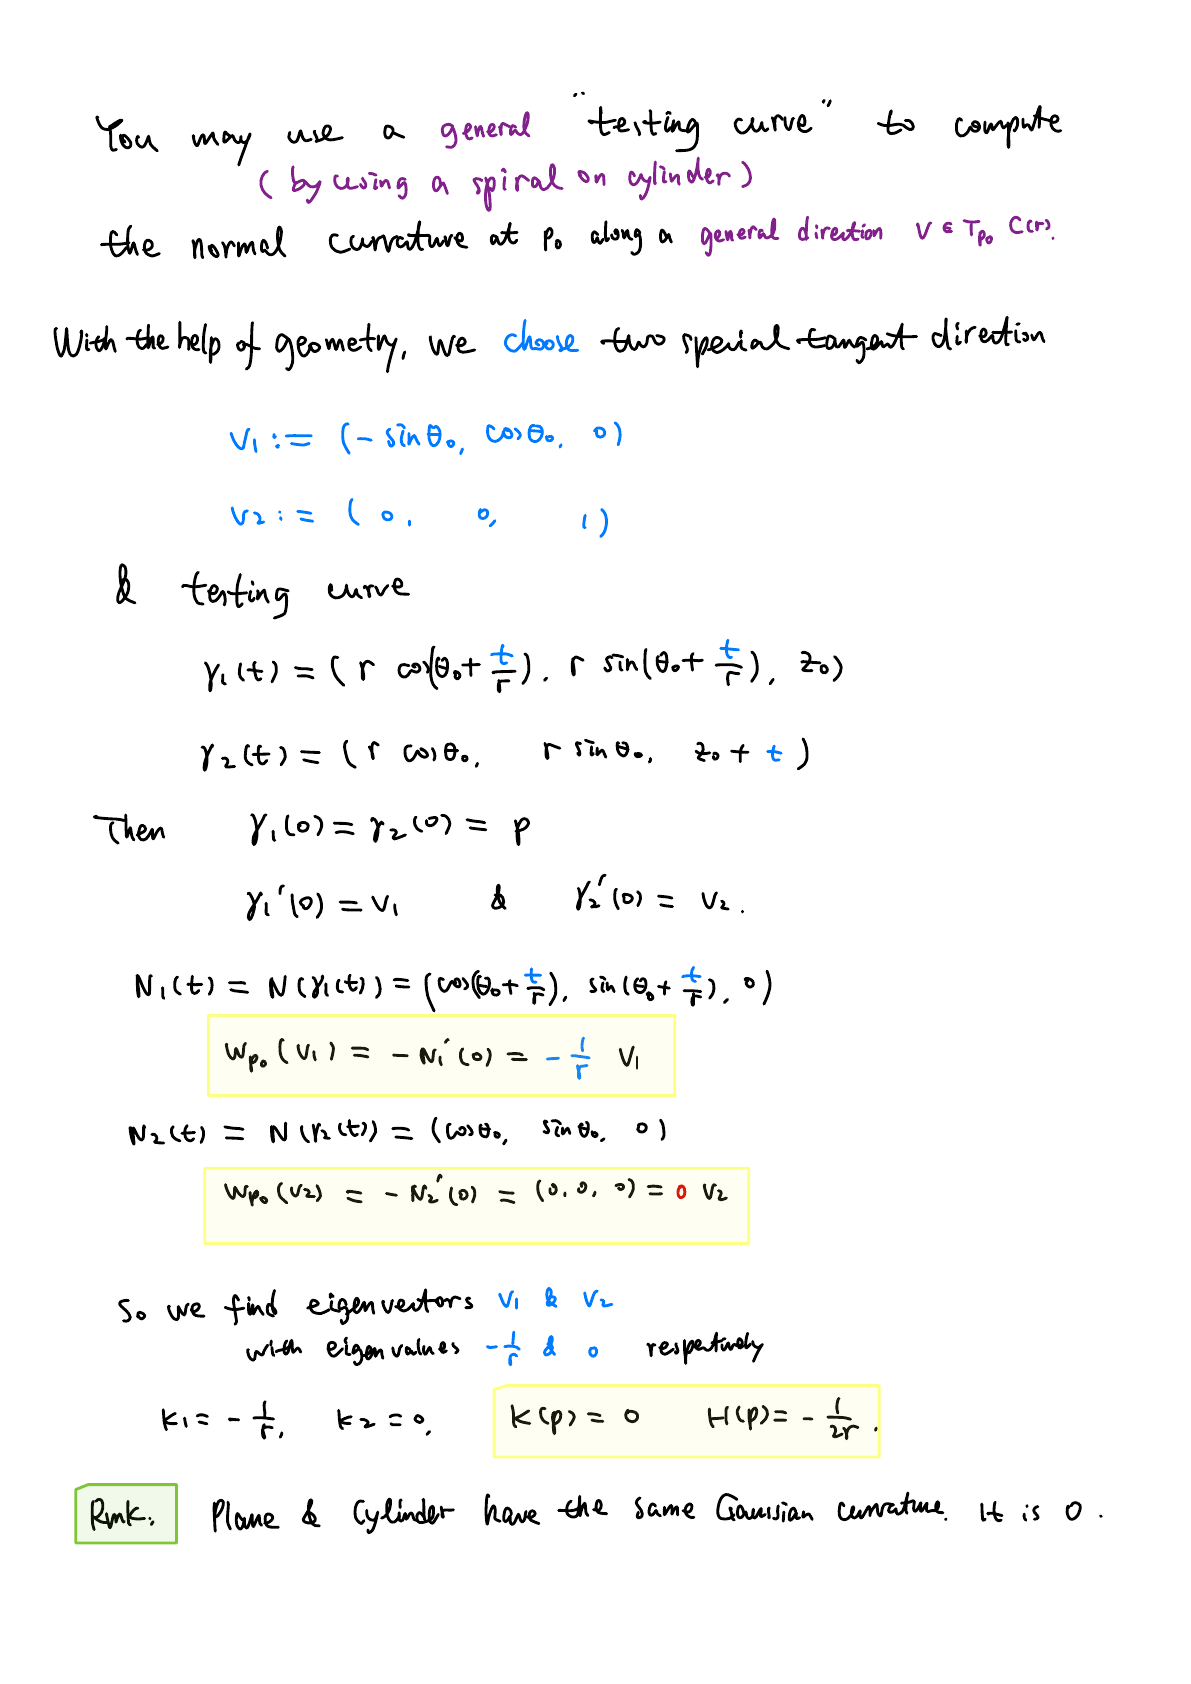 You may use a general "testing curve" to compute
(by using a spiral on cylinder)
the normal curvature at p₀ along a general direction v ∈ T_{p₀} C(r).
With the help of geometry, we choose two special tangent direction
v₁ := (- sinθ₀, cosθ₀, 0)
v₂ := ( 0, 0, 1)
& testing curve
γ₁(t) = ( r cos(θ₀+ t/r), r sin(θ₀+ t/r), z₀)
γ₂(t) = ( r cosθ₀, r sinθ₀, z₀ + t )
Then γ₁(0) = γ₂(0) = p
γ₁'(0) = v₁ & γ₂'(0) = v₂.
N₁(t) = N(γ₁(t)) = (cos(θ₀+ t/r), sin(θ₀+ t/r), 0)
W_{p₀}(v₁) = - N₁'(0) = - 1/r v₁
N₂(t) = N(γ₂(t)) = (cosθ₀, sinθ₀, 0)
W_{p₀}(v₂) = - N₂'(0) = (0, 0, 0) = 0 v₂
So we find eigenvectors v₁ & v₂
with eigenvalues - 1/r & 0 respectively
k₁ = - 1/r, k₂ = 0, K(p) = 0 H(p) = - 1/2r.
Rmk. Plane & Cylinder have the same Gaussian curvature. It is 0.